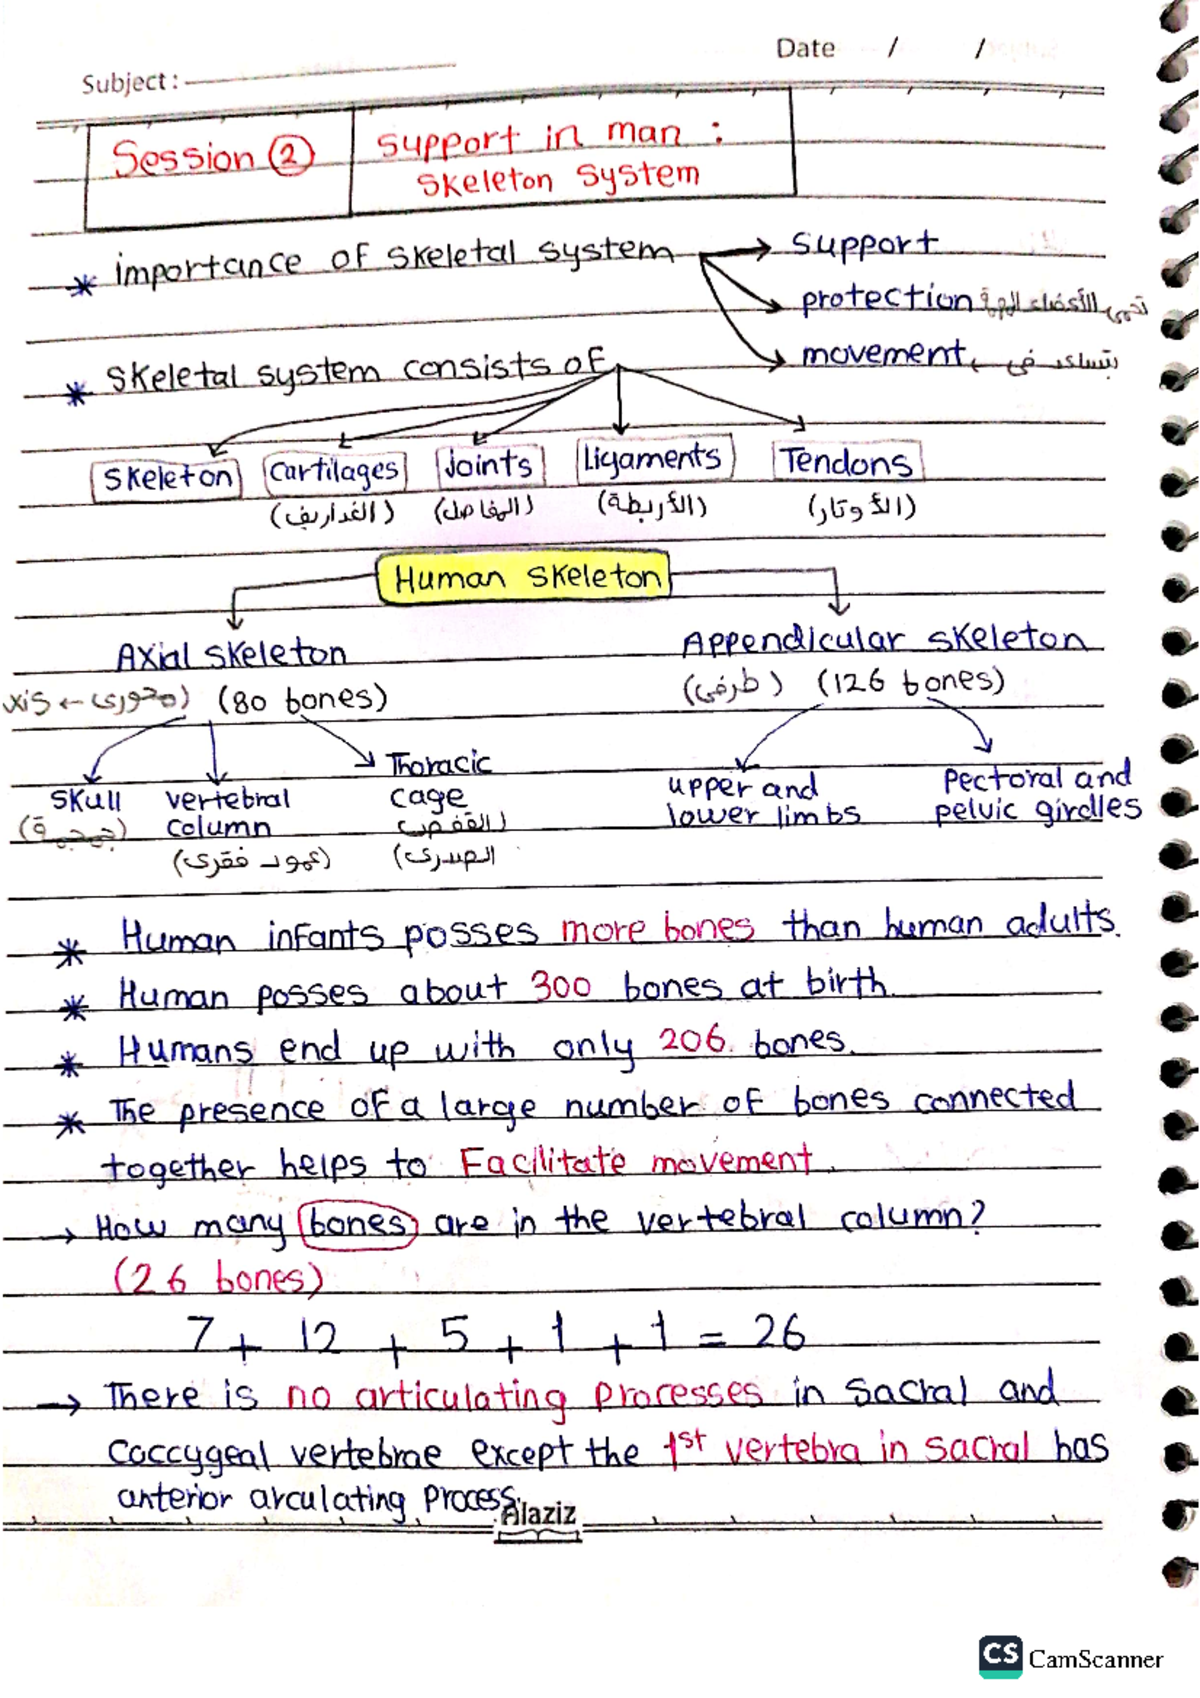 Date / /
Subject :
Session ②
Support in man :
Skeleton System
* importance of skeletal system → support
protection تحمى الأعضاء المهمة
movement ← بتساعد فى
* Skeletal system consists of
Skeleton Cartilages Joints Ligaments Tendons
(الغداريف) (المفاصل) (الأربطة) (الأوتار)
Human Skeleton
Axial skeleton Appendicular skeleton
xis ← (محورى) (80 bones) (طرفى) (126 bones)
Skull vertebral column Thoracic cage upper and lower limbs Pectoral and pelvic girdles
(جمجمة) (عمود فقرى) (القفص الصدرى)
* Human infants posses more bones than human adults.
* Human posses about 300 bones at birth.
* Humans end up with only 206 bones.
* The presence of a large number of bones connected
together helps to Facilitate movement.
→ How many bones are in the vertebral column?
(26 bones)
7 + 12 + 5 + 1 + 1 = 26
→ There is no articulating processes in sacral and
coccygeal vertebrae except the 1st vertebra in sacral has
anterior arculating process.
Alaziz
CS CamScanner